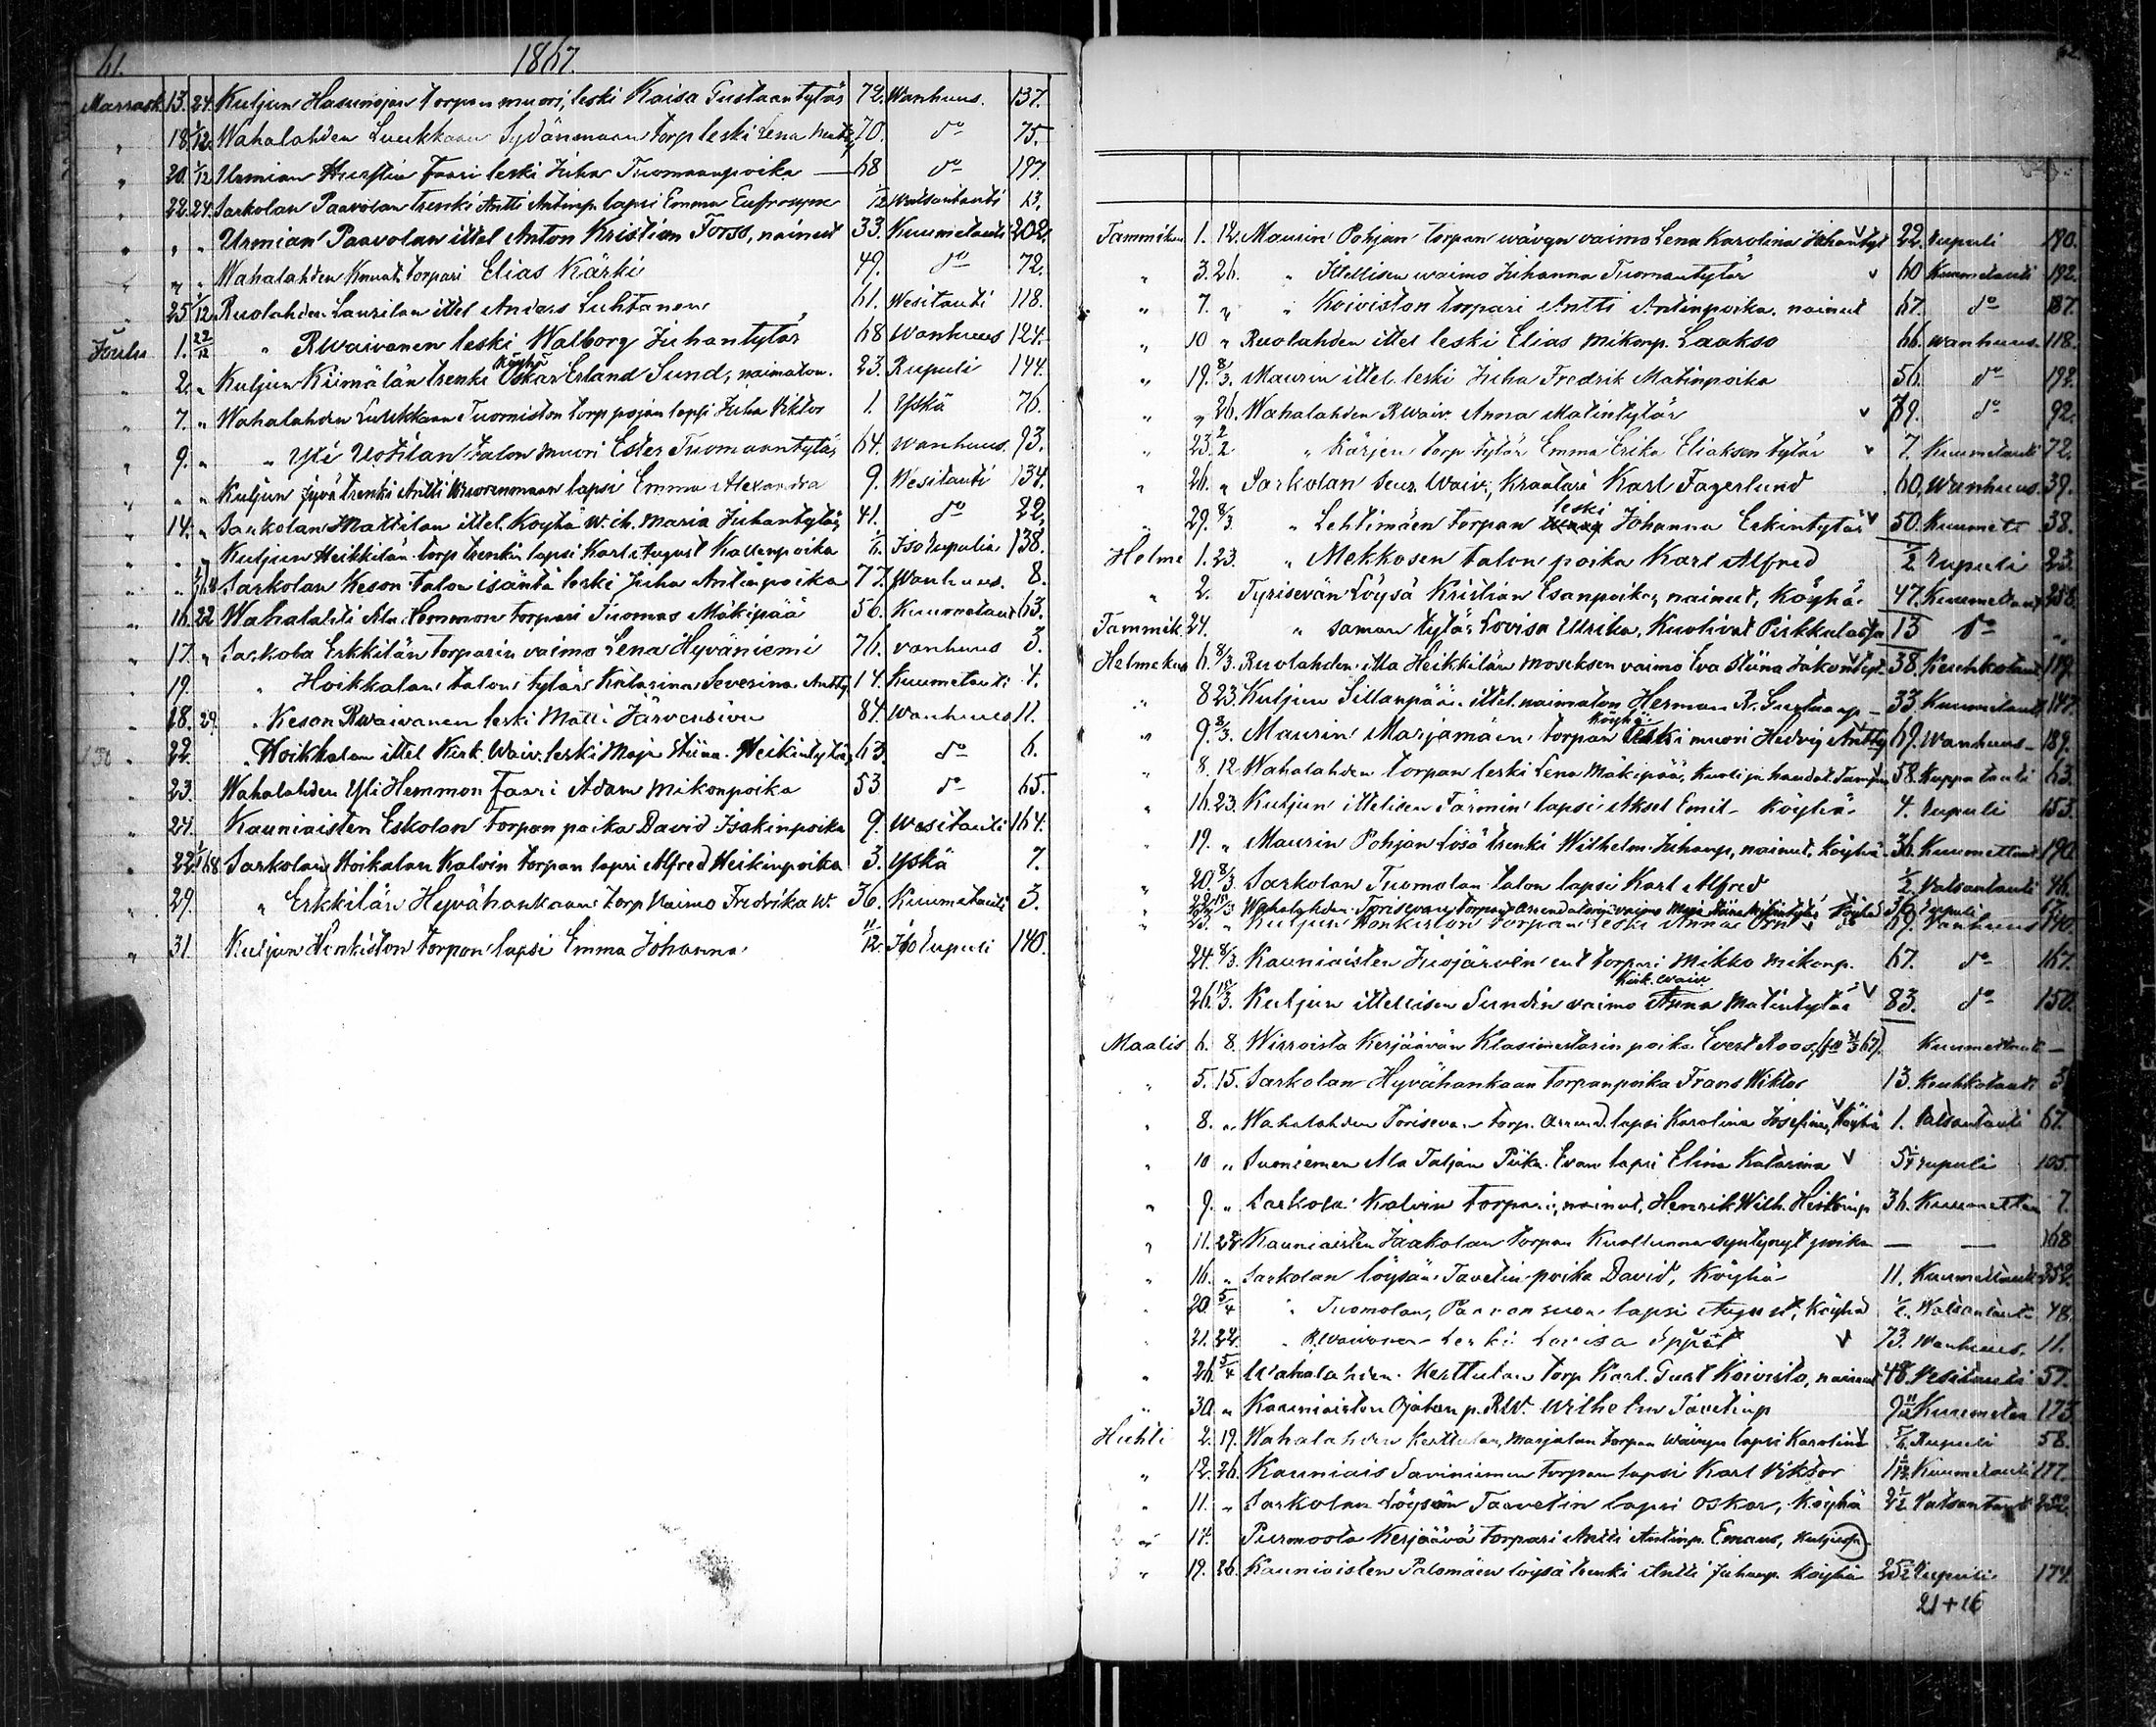 61.
1867.
Marrask. 13. 24. Kuljun Hasunojan torpan muori, leski Kaisa Gustaantytär 72. Wanhuus. 137.
" 18. 1/12 Wahalahden Luukkaan Sydänmaan torp leski Lena 70. do 75.
" 20. 1/12 Urmian faari leski Juha Tuomaanpoika — 68 do 197.
" 22. 24. Sarkolan Paavolan trenki Antti Antinp. lapsi Emma Eufrosyne 1/12 Watsantauti 13.
" " " Urmian Paavolan ittel Anton Kristian Forss, nainut 33. Kuumetauti 202.
" " Wahalahden Knuut. torpari Elias Kärki 49. do 72.
25. 1/12 Ruolahden Laurilan ittel Anders Luhtanen 61. Wesitauti 118.
Joulu 1. 22/12 " Rwaivanen leski Walborg Juhantytär 68 Wanhuus 124.
" 2. " Kuljun Kiimälän trenki Köyhä Oskar Erland Sund, naimaton. 23. Rupuli 144.
" 7. " Wahalahden Luukkaan Tuomiston torp pojan lapsi Juha Viktor 1. Yskä 76.
" 9. " " Yli Uotilan talon muori Ester Tuomaantytär 64. wanhuus. 93.
" " " Kuljun Jyvä trenki Antti lapsi Emma Alexandra 9. Wesitauti 134.
" 14. " Sarkolan Mattilan ittel. Köyhä w. ih. Maria Juhantytär 41. do 22.
" " Kuljun Heikkilän torp trenkin lapsi Karl August Kallenpoika Isorupulia 138.
" " Sarkolan Keson talon isäntä leski Juha Antinpoika 77. Wanhuus. 8.
" 16. 22 Wahalahti Ala Hemmon torpari Tuomas Mäkipää 56. Kuumetauti 63.
" 17. " Sarkola Erkkilän torparin vaimo Lena Hyväniemi 76. vanhuus 3.
" 19. " Hoikkalan talon tytär Katarina Severina Anttty. 14. Kuumetauti 4.
" 18. 29. " Keson Rwaivanen leski Matti Järvensivu 84. Wanhuus 11.
" 22. " Hoikkalan ittel Kirk. Waiv. leski Maja Stiina Heikintytär 63. do 6.
" 23. Wahalahden Yli Hemmon faari Adam Mikonpoika 53 do 65.
" 24. Kauniaisten Eskolan torpan poika David Isakinpoika 9. Wesitauti 164.
" 22. 1/1 68 Sarkolan Hoikalan Kalvin torpan lapsi Alfred Heikinpoika 3. Yskä 7.
" 29. " Erkkilän Hyvähankaan torp Vaimo Fredrika W. 36. Kuumetauti 3.
" 31. Kuljun Honkiston torpan lapsi Emma Johanna 11/12. Isorupuli 140.
62.
Tammikuu 1. 12. Maurin Pohjan torpan wävyn vaimo Lena Karolina Juhantyt 22. rupuli 190.
" 3. 26. " Ittellisen waimo Juhanna Tuomantytär v 60 Kuumetauti 192.
" 7. " " Koiviston torpari Antti Antinpoika, nainut 67. do 187.
" 10 " Ruolahden ittel leski Elias Mikonp. Laakso 66. wanhuus 118.
" 19. 8/3. Maurin ittel. leski Juha Fredrik Matinpoika 56. do 192.
" " 26. Wahalahden Rwaiv. Anna Matintytär v 79. do 92.
" 23. 2/2 " Kärjen torp tytär Emma Erika Eliaksen tytär v 7. Kuumetauti 72.
" 26. " Sarkolan Seur. Waiv., kraatari Karl Fagerlund 60. Wanhuus. 39.
" 29. 8/3 " Lehtimäen torpan leski Johanna Erkintytär v 50. Kuumett 38.
Helme 1. 23. " Mekkosen talon poika Karl Alfred 1/2 rupuli 23.
" 2. Tyrisevän Löysä Kristian Esanpoika, nainut, Köyhä 47. Kuumetauti 258.
Tammik. 24. " saman tytär Lovisa Ulrika, Kuolivat Pirkkalassa 13 do "
Helmekuu 6. 8/3. Ruolahden itla Heikkilän Moseksen vaimo Eva Stiina Jakontyt. 38. Keuhkotaut 119.
" 8 23. Kuljun Sillanpään ittel. naimaton Herman K. Gustaap — 33. Kuumetauti 147.
" 9. 8/3. Maurin Marjamäen torpan Köyhä muori Hedvig Anttty 69. Wanhuus — 189.
" 8. 12. Wahalahden torpan leski Lena Mäkipää, Kuoli ja haudat. 58. Kuppatauti 63.
" 16. 23. Kuljun ittelisen Färmin lapsi Aksel Emil — köyhä 4. rupuli 153.
" 19. " Maurin Pohjan Lösä trenki Wilhelm Juhanp., nainut, Köyhä 36. Kuumettaut 190.
" 20. 8/3. Sarkolan Tuomolan talon lapsi Karl Alfred 1/2 Vatsantauti 46.
" Wahalahden Torisevan torpan arendatorin vaimo Maja Stiina köyhä 36. rupuli 67.
" 23. " Kuljun Honkiston torpan leski Anna Örn v do 69. Vanhuus 140.
24. 8/3. Kauniaisten Juojärven ent torpari Mikko Mikonp. 67. do 167.
26. 15/3. Kuljun ittellisen Sundin vaimo Kirk. waiv Anna Matintytär v 83. do 150.
Maalis 6. 8. Wirroista Kerjäävän Klasimestarin poika Evert Roos, Kuumettaut —
" 5. 15. Sarkolan Hyvähankaan torpanpoika Frans Wiktor 13. Keuhkotauti 3
" 8. " Wahalahden Torisevan torp. arrend. lapsi Karolina Josefina, Köyhä 1. Vatsantauti 67.
" 10 " Suoniemen Ala Taljan Piika Evan lapsi Elina Katarina v rupuli 105.
" 9. " Sarkola Kalvin torpari, nainut, Henrik Wilh. Heikinp 36. Kuumettau 7.
" 11. 22 Kauniaisten Jaakolan torpan Kuolluna syntynyt poika — — 168
" 16. " Sarkolan löysän Tavetin poika David, Köyhä 11. Kuumetauti 252.
" 20. 5/4 " Tuomolan, Paavonsuon lapsi August, Köyhä 1/2. Watsantaut 48.
" 21. 22. " Rwaivanen leski Lovisa v 73. Wanhuus. 11.
" 26. 5/4 Wahalahden Kerttulan torp Karl Gust Koivisto, nainut 48. Vesitauti 57.
" 30. " Kauniaisten Ojahan p. RW. Wilhelm Tavetinp 9 11/12 Kuumetau 173
Huhti 2. 19. Wahalahden Kerttulan, Marjalan torpan Wävyn lapsi Karolina Rupuli 58.
" 12. 26. Kauniais Saviniemen torpan lapsi Karl Viktor Kuumetauti 177.
" 11. " Sarkolan Löysän Taavetin lapsi Oskar, Köyhä 2 1/2 Vatsantaut 252.
" 17. Purmosta Kerjäävä torpari Antti Antinp. Emaus,
" 19. 26. Kauniaisten Palomäen löysä trenki Antti Juhanp. köyhä rupuli 174.
21+16